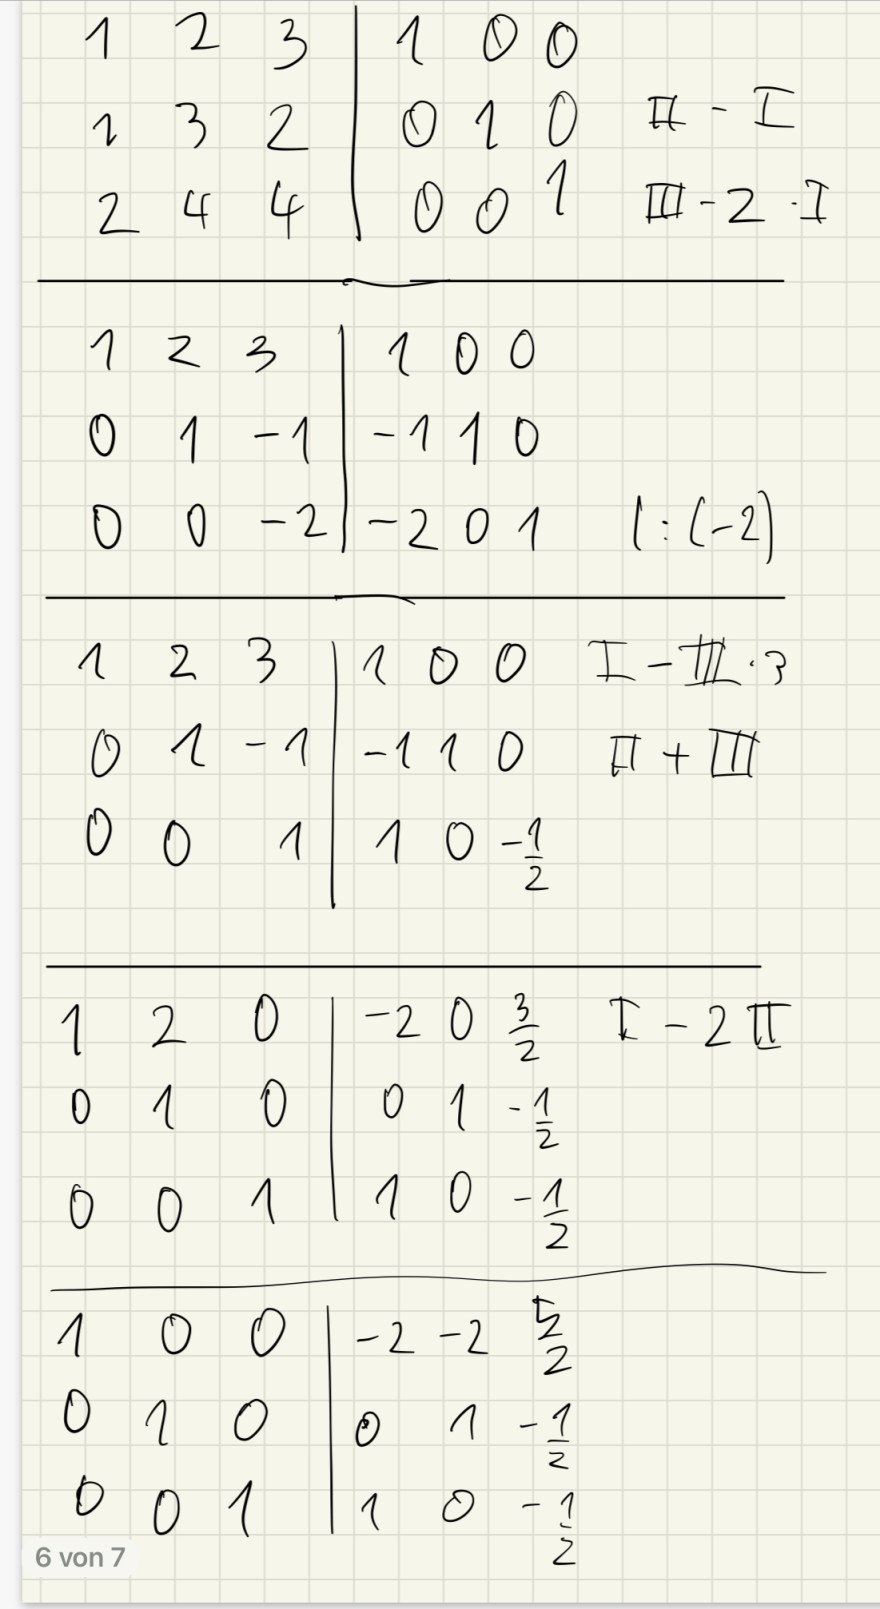 1 2 3 | 1 0 0
1 3 2 | 0 1 0 II - I
2 4 4 | 0 0 1 III - 2 · I
1 2 3 | 1 0 0
0 1 -1 | -1 1 0
0 0 -2 | -2 0 1 | : (-2)
1 2 3 | 1 0 0 I - III · 3
0 1 -1 | -1 1 0 II + III
0 0 1 | 1 0 -1/2
1 2 0 | -2 0 3/2 I - 2 II
0 1 0 | 0 1 -1/2
0 0 1 | 1 0 -1/2
1 0 0 | -2 -2 5/2
0 1 0 | 0 1 -1/2
0 0 1 | 1 0 -1/2
6 von 7